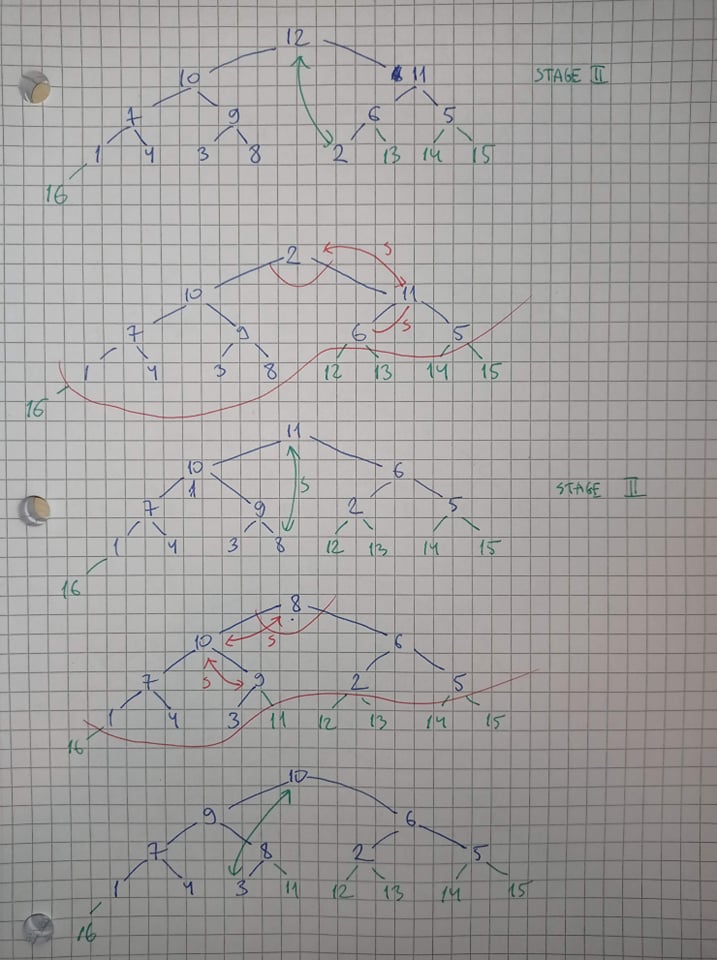 12
10 11 STAGE II
7 9 6 5
1 4 3 8 2 13 14 15
16
2 S
10 11
7 9 6 S 5
1 4 3 8 12 13 14 15
16
11
10 6
1 S STAGE II
7 9 2 5
1 4 3 8 12 13 14 15
16
8
10 S 6
7 S 9 2 5
1 4 3 11 12 13 14 15
16
10
9 6
7 8 2 5
1 4 3 11 12 13 14 15
16